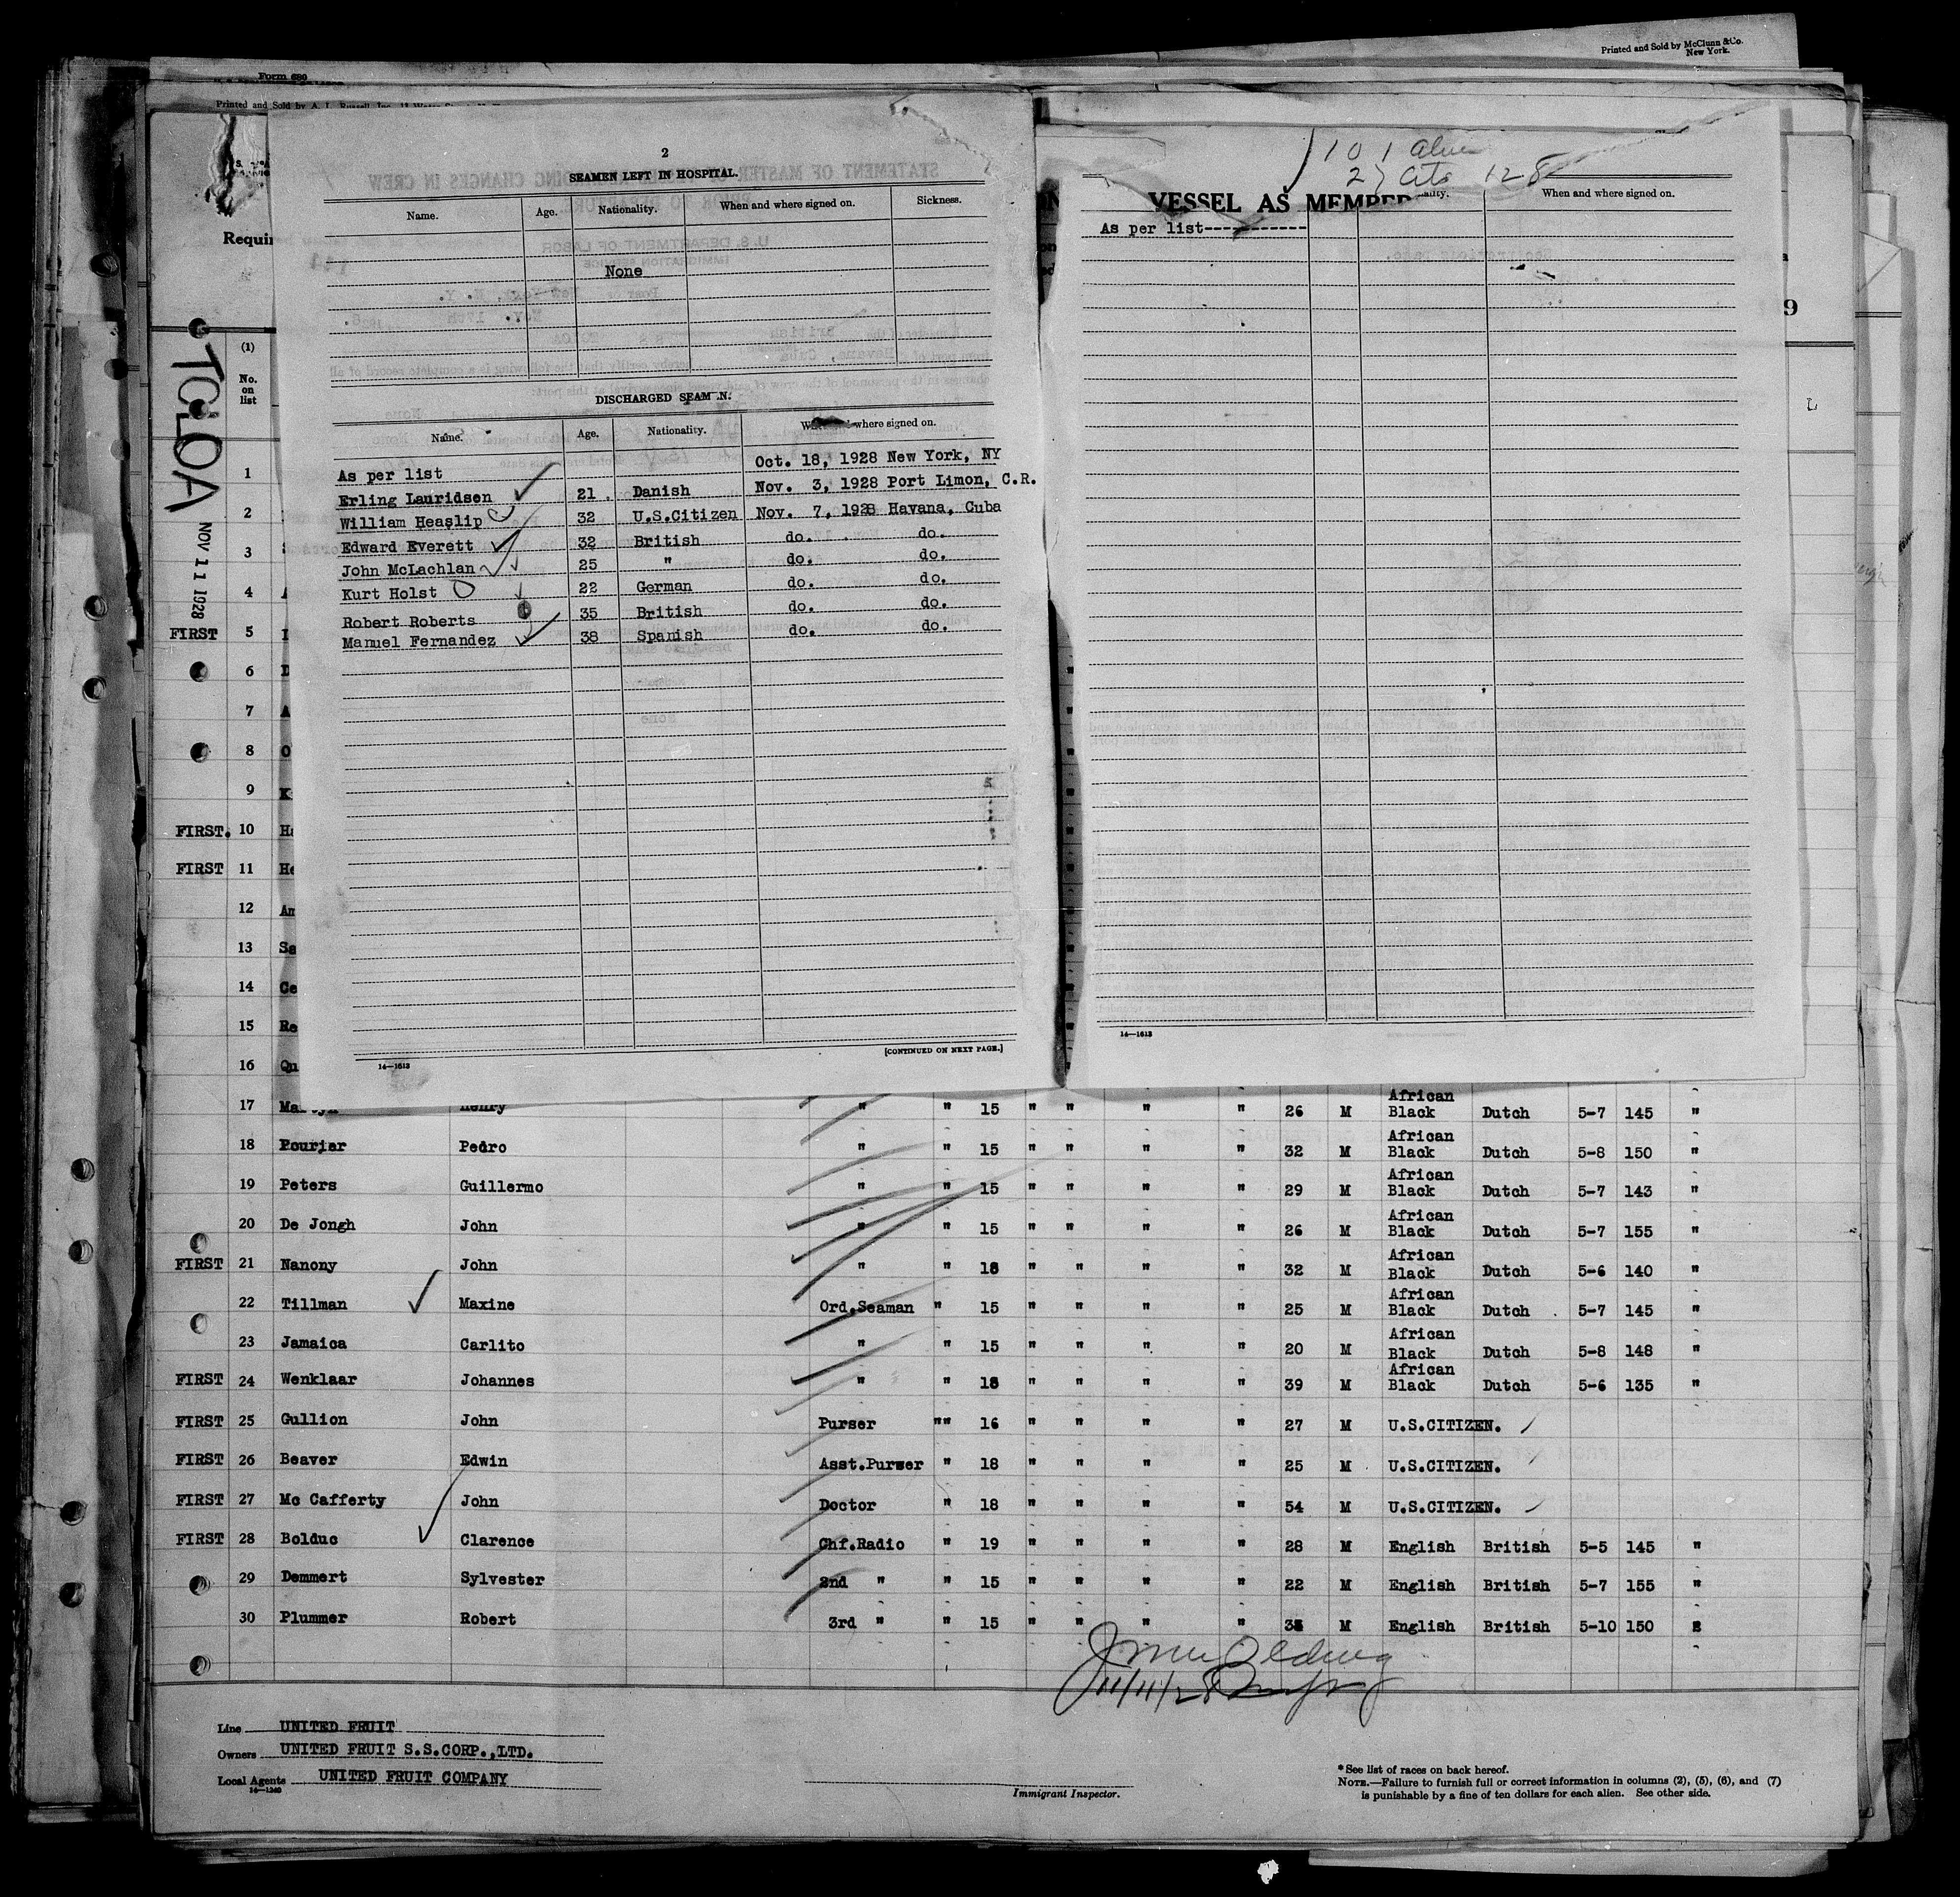 Printed and Sold by McClunn & Co.
New York.
Form 680
Printed and Sold by A. L. Russell, Inc.
2
SEAMEN LEFT IN HOSPITAL.
Name. Age. Nationality. When and where signed on. Sickness.
None
DISCHARGED SEAM N.
Name. Age. Nationality. where signed on.
As per list Oct. 18, 1928 New York, NY
Erling Lauridsen 21 Danish Nov. 3, 1928 Port Limon, C.R.
William Heaslip 32 U.S.Citizen Nov. 7, 1928 Havana, Cuba
Edward Everett 32 British do. do.
John McLachlan 25 " do. do.
Kurt Holst 22 German do. do.
Robert Roberts 35 British do. do.
Manuel Fernandez 38 Spanish do. do.
[CONTINUED ON NEXT PAGE.]
14—1613
101
128
VESSEL AS MEMBER
When and where signed on.
As per list-----------
14—1613
Requir
9
TOLOA
NOV 11 1928
(1)
No.
on
list
1
2
3
4
FIRST 5
6
7
8
9
FIRST. 10
FIRST 11
12
13
14
15
16
17 Martyn Henry " " 15 " " " " 26 M African Black Dutch 5-7 145 "
18 Pourier Pedro " " 15 " " " " 32 M African Black Dutch 5-8 150 "
19 Peters Guillermo " " 15 " " " " 29 M African Black Dutch 5-7 143 "
20 De Jongh John " " 15 " " " " 26 M African Black Dutch 5-7 155 "
FIRST 21 Nanony John " " 18 " " " " 32 M African Black Dutch 5-6 140 "
22 Tillman Maxine Ord.Seaman " 15 " " " " 25 M African Black Dutch 5-7 145 "
23 Jamaica Carlito " " 15 " " " " 20 M African Black Dutch 5-8 148 "
FIRST 24 Wenklaar Johannes " " 18 " " " " 39 M African Black Dutch 5-6 135 "
FIRST 25 Gullion John Purser "" 16 " " " " 27 M U.S.CITIZEN.
FIRST 26 Beaver Edwin Asst.Purser " 18 " " " " 25 M U.S.CITIZEN.
FIRST 27 Mc Cafferty John Doctor " 18 " " " " 54 M U.S.CITIZEN.
FIRST 28 Bolduc Clarence Chf.Radio " 19 " " " " 28 M English British 5-5 145 "
29 Demmert Sylvester 2nd " " 15 " " " " 22 M English British 5-7 155 "
30 Plummer Robert 3rd " " 15 " " " " M English British 5-10 150
11/11/28
Line UNITED FRUIT
Owners UNITED FRUIT S.S.CORP.,LTD.
Local Agents UNITED FRUIT COMPANY
14—1240
Immigrant Inspector.
*See list of races on back hereof.
NOTE.—Failure to furnish full or correct information in columns (2), (5), (6), and (7)
is punishable by a fine of ten dollars for each alien. See other side.